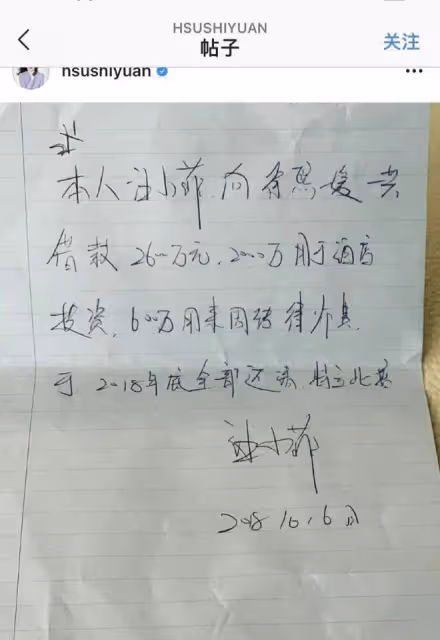 HSUSHIYUAN
帖子
关注
hsushiyuan
本人汪小菲向徐熙媛共
借款 2600万元，2000万用于酒店
投资，600万用来周转
于 2018年底全部还清，特立此据
汪小菲
2018 10，6日